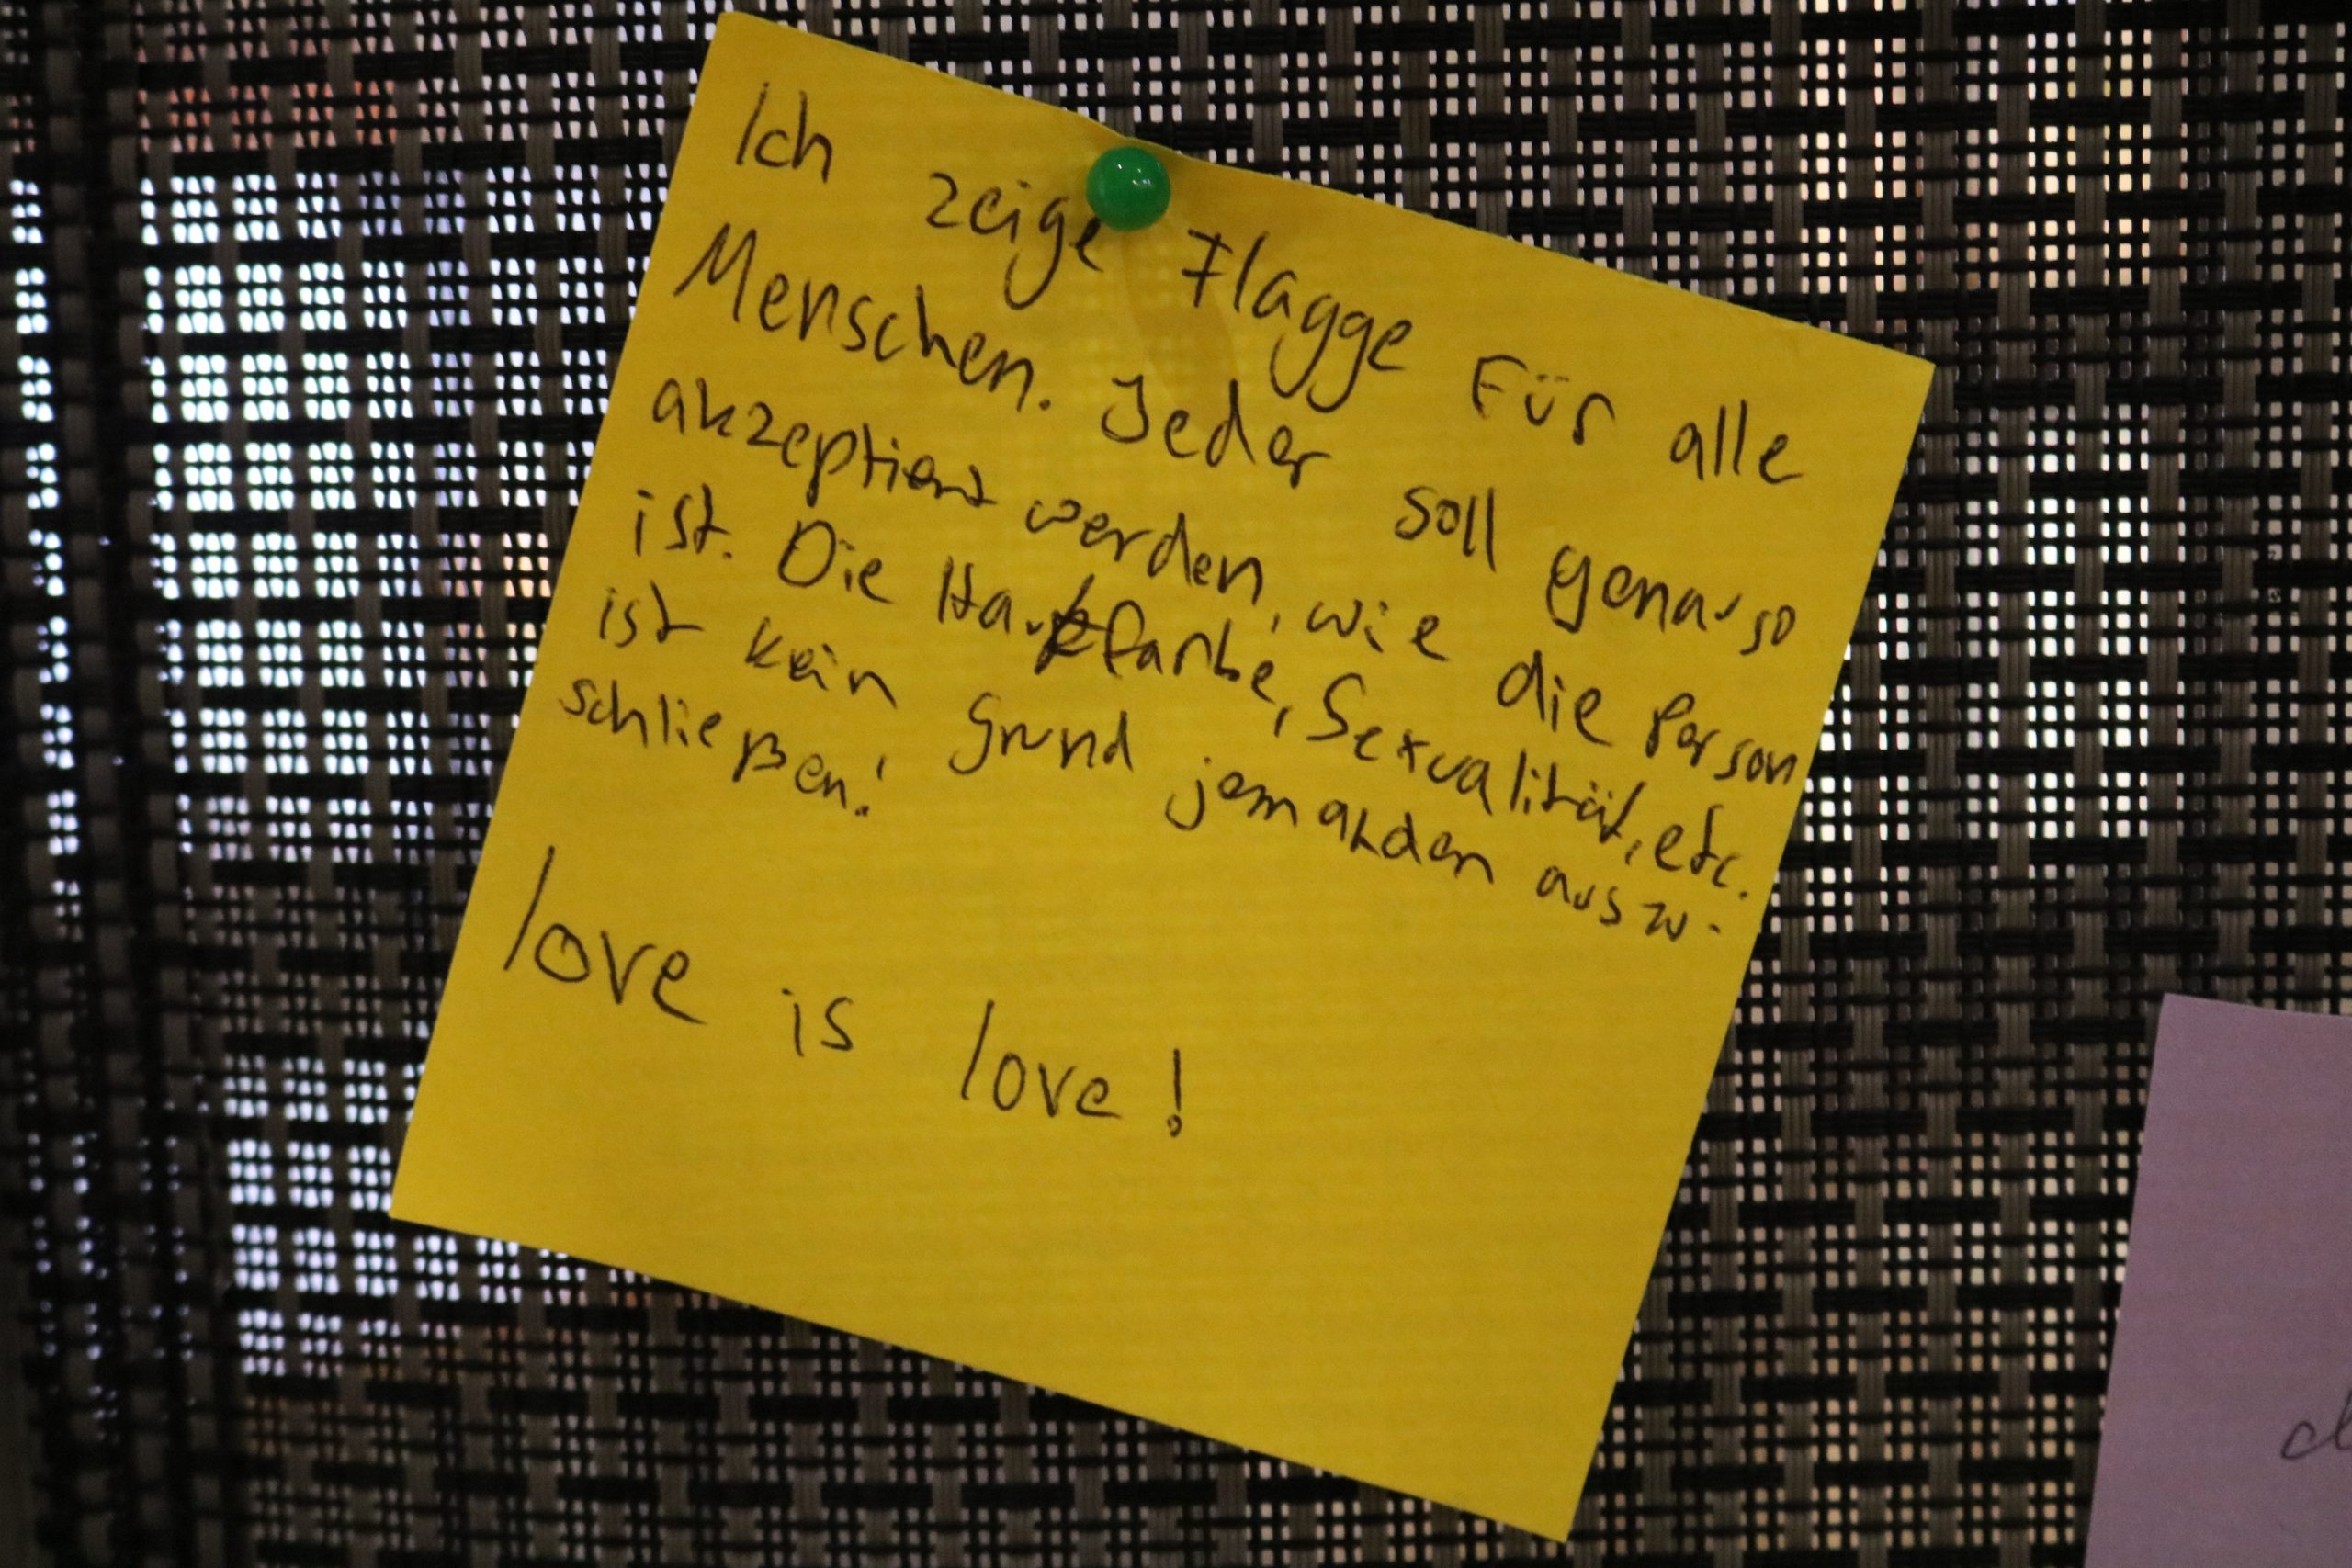 Ich zeige Flagge Für alle
Menschen. Jeder soll genauso
akzeptiert werden, wie die Person
ist. Die Hautfarbe, Sexualität, etc.
ist kein Grund jemanden auszu-
schließen!
love is love!